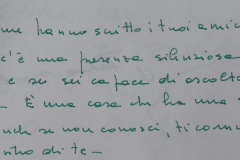 me hanno scritto i tuoi amici
c'è una presenza silenziosa
e sei sei capace di ascolta
È una casa che ha una
nch se non conosci, ti comu
ntro di te -